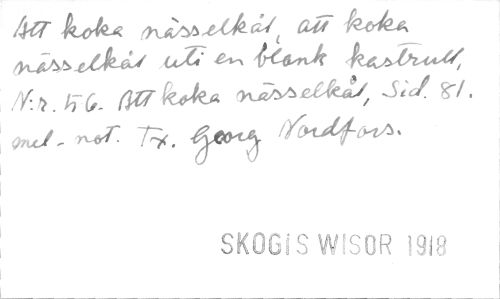 Att koka nässelkål, att koka
nässelkål uti en blank kastrull,
N:r. 56. Att koka nässelkål, Sid. 81.
mel-not. Tx. Georg Nordfors.
SKOGIS WISOR 1918